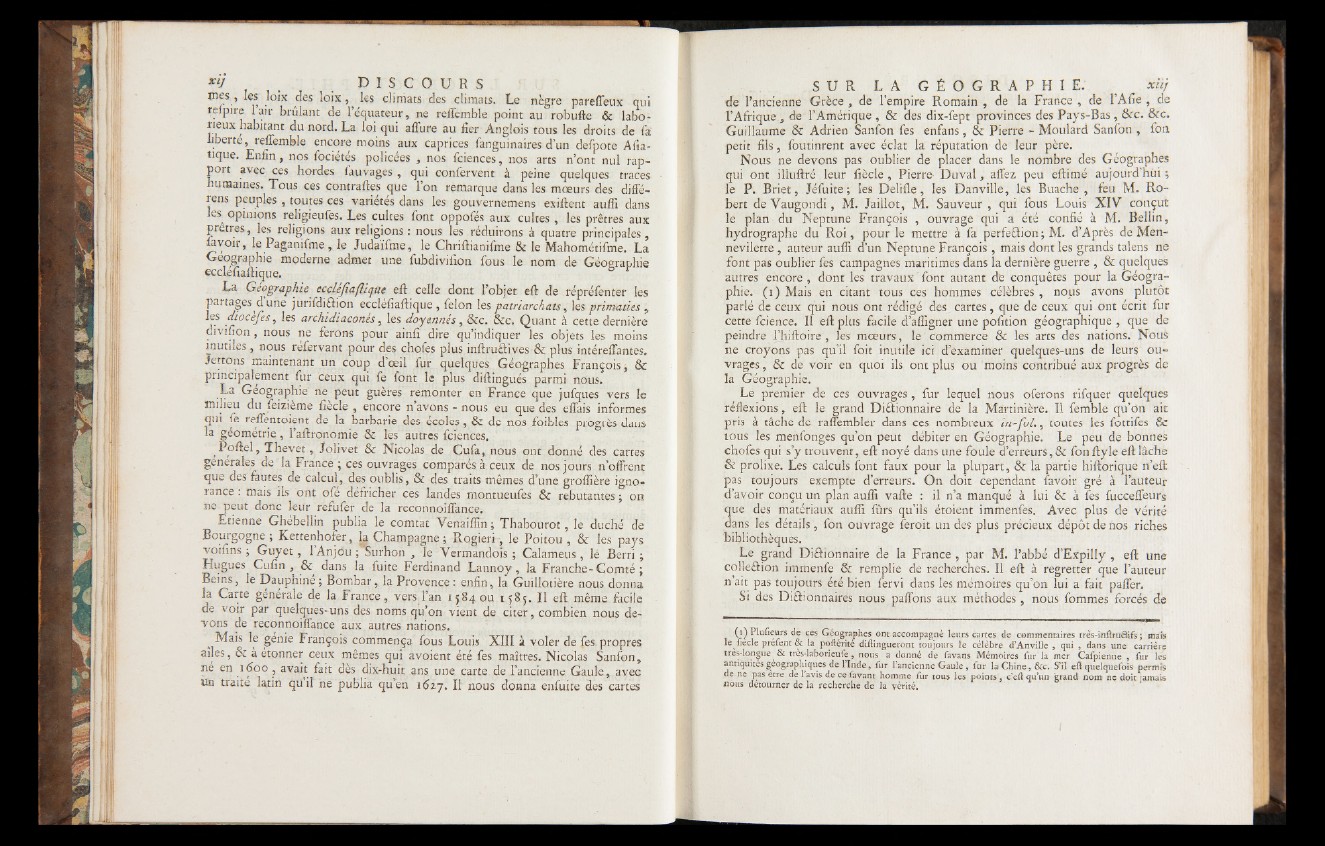 xij DISCOURS
mes, les loix des loix, les climats des climats. Le nègre pareſſeux qui
reſpire l'air brûlant de l'équateur, ne reſſemble point au robuſte & labo-
rieux habitant du nord. La loi qui aſſure au fier Anglois tous les droits de ſa
liberté, reſſemble encore moins aux caprices ſanguinaires d'un deſpote Aſia-
tique. Enfin, nos ſociétés policées, nos ſciences, nos arts n'ont nul rap-
port avec ces hordes ſauvages, qui conſervent à peine quelques traces
humaines. Tous ces contraſtes que l'on remarque dans les mœurs des diffé-
rens peuples, toutes ces variétés dans les gouvernemens exiſtent auſſi dans
les opinions religieuſes. Les cultes ſont oppoſés aux cultes, les prêtres aux
prêtres, les religions aux religions : nous les réduirons à quatre principales,
ſavoir, le Paganiſme, le Judaïſme, le Chriſtianiſme & le Mahométiſme. La
Géographie moderne admet une ſubdiviſion ſous le nom de Géographie
eccléſiaſtique.
La Géographie eccléſiaſtique eſt celle dont l'objet eſt de répréſenter les
partages d'une juriſdiction eccléſiaſtique, ſelon les patriarchats, les primaties,
les diocèſes, les archidiaconés, les doyennés, &c. &c. Quant à cette dernière
diviſion, nous ne ferons pour ainſi dire qu'indiquer les objets les moins
inutiles, nous réſervant pour des choſes plus inſtructives & plus intéreſſantes.
Jettons maintenant un coup d'œil ſur quelques Géographes François, &
principalement ſur ceux qui ſe ſont le plus diſtingués parmi nous.
La Géographie ne peut guères remonter en France que juſques vers le
milieu du ſeizième ſiècle, encore n'avons-nous eu que des eſſais informes
qui ſe reſſentoient de la barbarie des écoles, & de nos foibles progrès dans
la géométrie, l'aſtronomie & les autres ſciences.
Poſtel, Thevet, Jolivet & Nicolas de Cuſa, nous ont donné des cartes
générales de la France ; ces ouvrages comparés à ceux de nos jours n'offrent
que des fautes de calcul, des oublis, & des traits mêmes d'une groſſière igno-
rance : mais ils ont oſé défricher ces landes montueuſes & rebutantes ; on
ne peut donc leur refuſer de la reconnoiſſance.
Etienne Ghébellin publia le comtat Venaiſſin ; Thabourot, le duché de
Bourgogne ; Kettenhofer, la Champagne ; Rogieri, le Poitou, & les pays
voiſins ; Guyet, l'Anjou ; Surhon, le Vermandois ; Calameus, le Berri ;
Hugues Cuſin, & dans la ſuite Ferdinand Lannoy, la Franche-Comté ;
Beins, le Dauphiné ; Bombar, la Provence : enfin, la Guillotière nous donna
la Carte générale de la France, vers l'an 1584 ou 1585. Il eſt même facile
de voir par quelques-uns des noms qu'on vient de citer, combien nous de-
vons de reconnoiſſance aux autres nations.
Mais le génie François commença ſous Louis XIII à voler de ſes propres
ailes, & à étonner ceux mêmes qui avoient été ſes maîtres. Nicolas Sanſon,
né en 1600, avait fait dès dix-huit ans une carte de l'ancienne Gaule, avec
un traité latin qu'il ne publia qu'en 1627. Il nous donna enſuite des cartes
SUR LA GÉOGRAPHIE. xiij
de l'ancienne Grèce, de l'empire Romain, de la France, de l'Aſie, de
l'Afrique, de l'Amérique, & des dix-ſept provinces des Pays-Bas, &c. &c.
Guillaume & Adrien Sanſon ſes enfans, & Pierre-Moulard Sanſon, ſon
petit fils, ſoutinrent avec éclat la réputation de leur père.
Nous ne devons pas oublier de placer dans le nombre des Géographes
qui ont illuſtré leur ſiècle, Pierre Duval, aſſez peu eſtimé aujourd'hui ;
le P. Briet, Jéſuite ; les Deliſle, les Danville, les Buache, feu M. Ro-
bert de Vaugondi, M. Jaillot, M. Sauveur, qui ſous Louis XIV conçut
le plan du Neptune François, ouvrage qui a été confié à M. Bellin,
hydrographe du Roi, pour le mettre à ſa perfection ; M. d'Après de Men-
nevilette, auteur auſſi d'un Neptune François, mais dont les grands talens ne
font pas oublier ſes campagnes maritimes dans la dernière guerre, & quelques
autres encore, dont les travaux ſont autant de conquêtes pour la Géogra-
phie. (1) Mais en citant tous ces hommes célèbres, nous avons plutôt
parlé de ceux qui nous ont rédigé des cartes, que de ceux qui ont écrit ſur
cette ſcience. Il eſt plus facile d'aſſigner une poſition géographique, que de
peindre l'hiſtoire, les mœurs, le commerce & les arts des nations. Nous
ne croyons pas qu'il ſoit inutile ici d'examiner quelques-uns de leurs ou-
vrages, & de voir en quoi ils ont plus ou moins contribué aux progrès de
la Géographie.
Le premier de ces ouvrages, ſur lequel nous oſerons riſquer quelques
réflexions, eſt le grand Dictionnaire de la Martinière. Il ſemble qu'on ait
pris à tâche de raſſembler dans ces nombreux in-fol., toutes les ſottiſes &
tous les menſonges qu'on peut débiter en Géographie. Le peu de bonnes
choſes qui s'y trouvent, eſt noyé dans une foule d'erreurs, & ſon ſtyle eſt lâche
& prolixe. Les calculs ſont faux pour la plupart, & la partie hiſtorique n'eſt
pas toujours exempte d'erreurs. On doit cependant ſavoir gré à l'auteur
d'avoir conçu un plan auſſi vaſte : il n'a manqué à lui & à ſes ſucceſſeurs
que des matériaux auſſi ſûrs qu'ils étoient immenſes. Avec plus de vérité
dans les détails, ſon ouvrage ſeroit un des plus précieux dépôt de nos riches
bibliothèques.
Le grand Dictionnaire de la France, par M. l'abbé d'Expilly, eſt une
collection immenſe & remplie de recherches. Il eſt à regretter que l'auteur
n'ait pas toujours été bien ſervi dans les mémoires qu'on lui a fait paſſer.
Si des Dictionnaires nous paſſons aux méthodes, nous ſommes forcés de
(1) Pluſieurs de ces Géographes ont accompagné leurs cartes de commentaires très-inſtructifs ; mais
le ſiècle préſent & la poſtérité diſtingueront toujours le célèbre d'Anville, qui, dans une carrière
très-longue & très-laborieuſe, nous a donné de ſavans Mémoires ſur la mer Caſpienne, ſur les
antiquités géographiques de l'Inde, ſur l'ancienne Gaule, ſur la Chine, &c. S'il eſt quelquefois permis
de ne pas être de l'avis de ce ſavant homme ſur tous les points, c'eſt qu'un grand nom ne doit jamais
nous détourner de la recherche de la vérité.